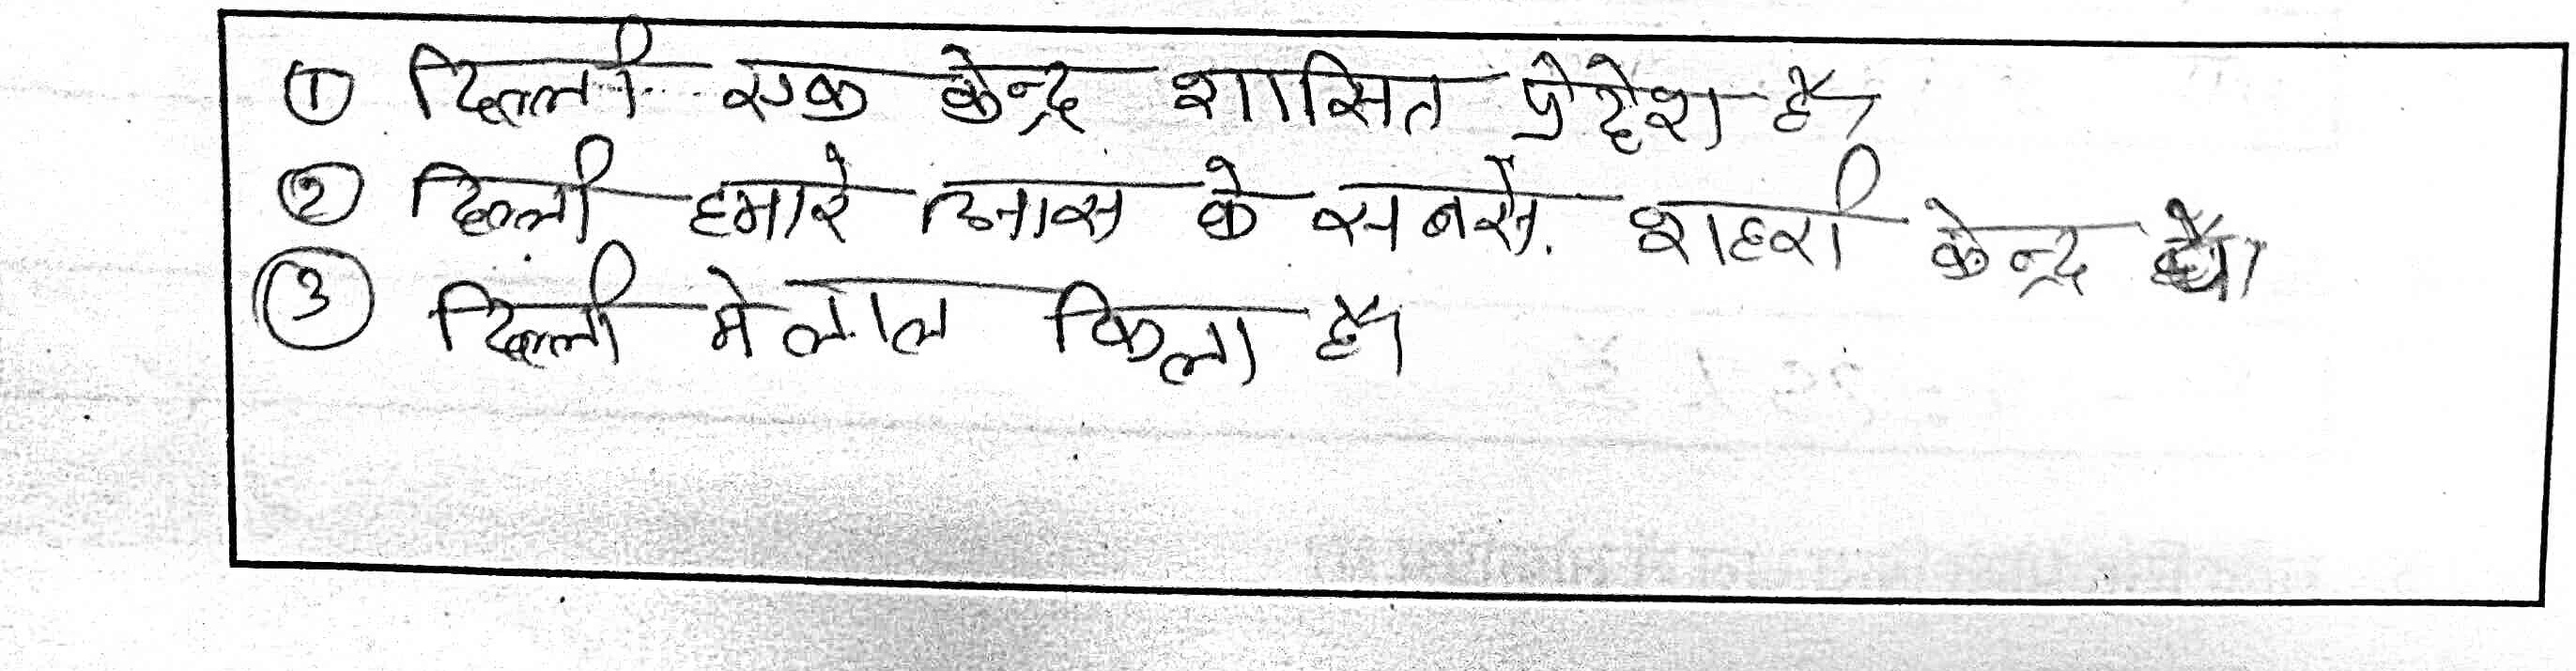 ① दिल्ली एक केन्द्र शासित प्रेदेश है।
② दिल्ली हमारे आस के सबसे. शहरी केन्द्र है।
③ दिल्ली मे लाल किला है।